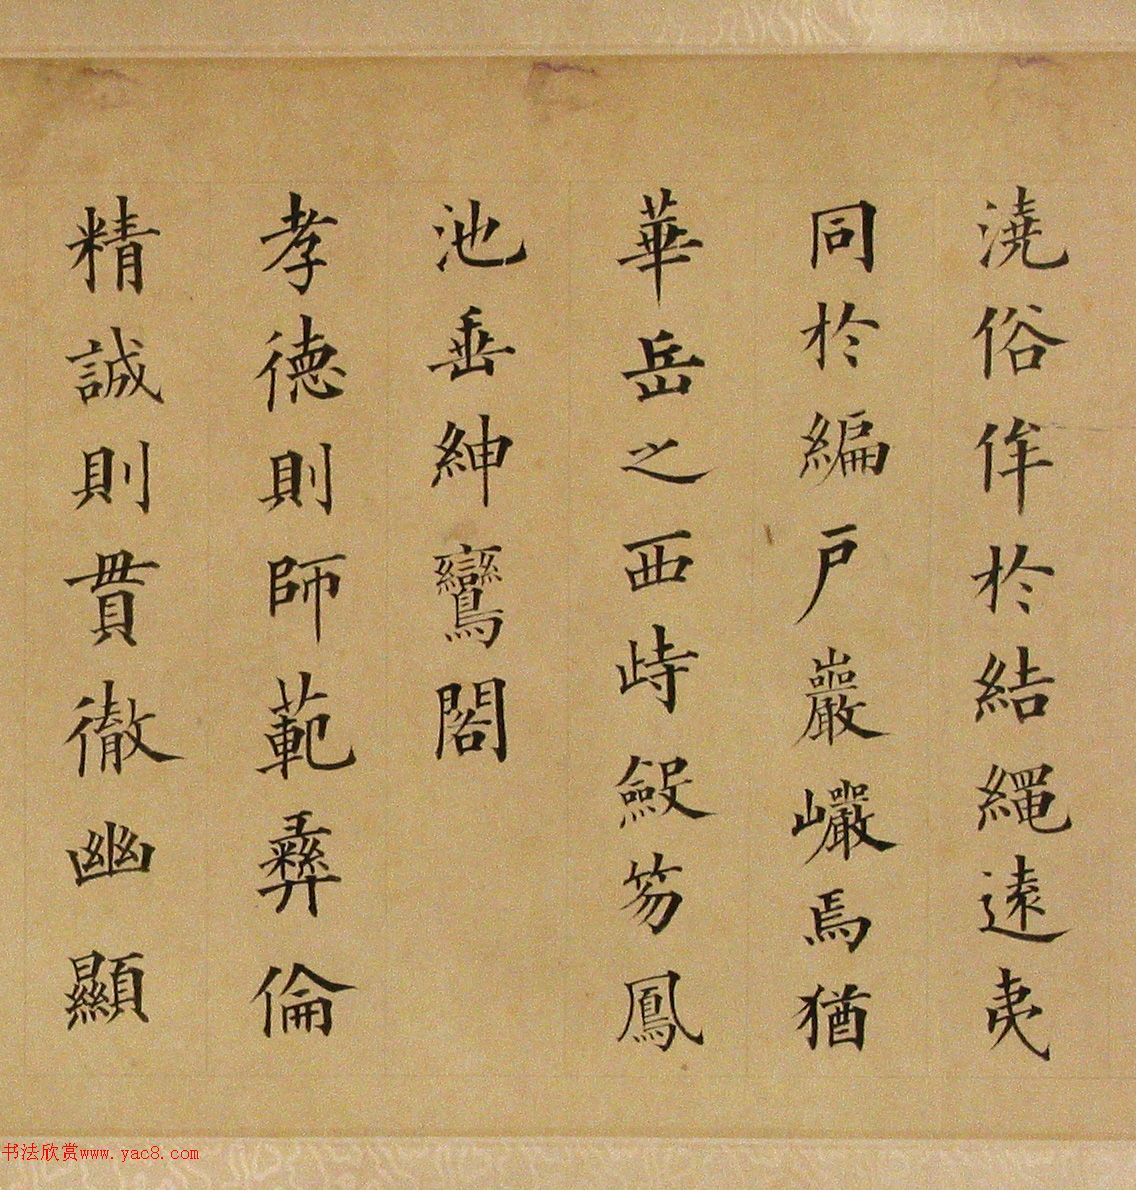 澆俗侔於結繩遠夷
同於編戶巖巖焉猶
華岳之西峙斂笏鳳
池垂紳鸞閣
孝德則師範彝倫
精誠則貫徹幽顯
书法欣赏www.yac8.com